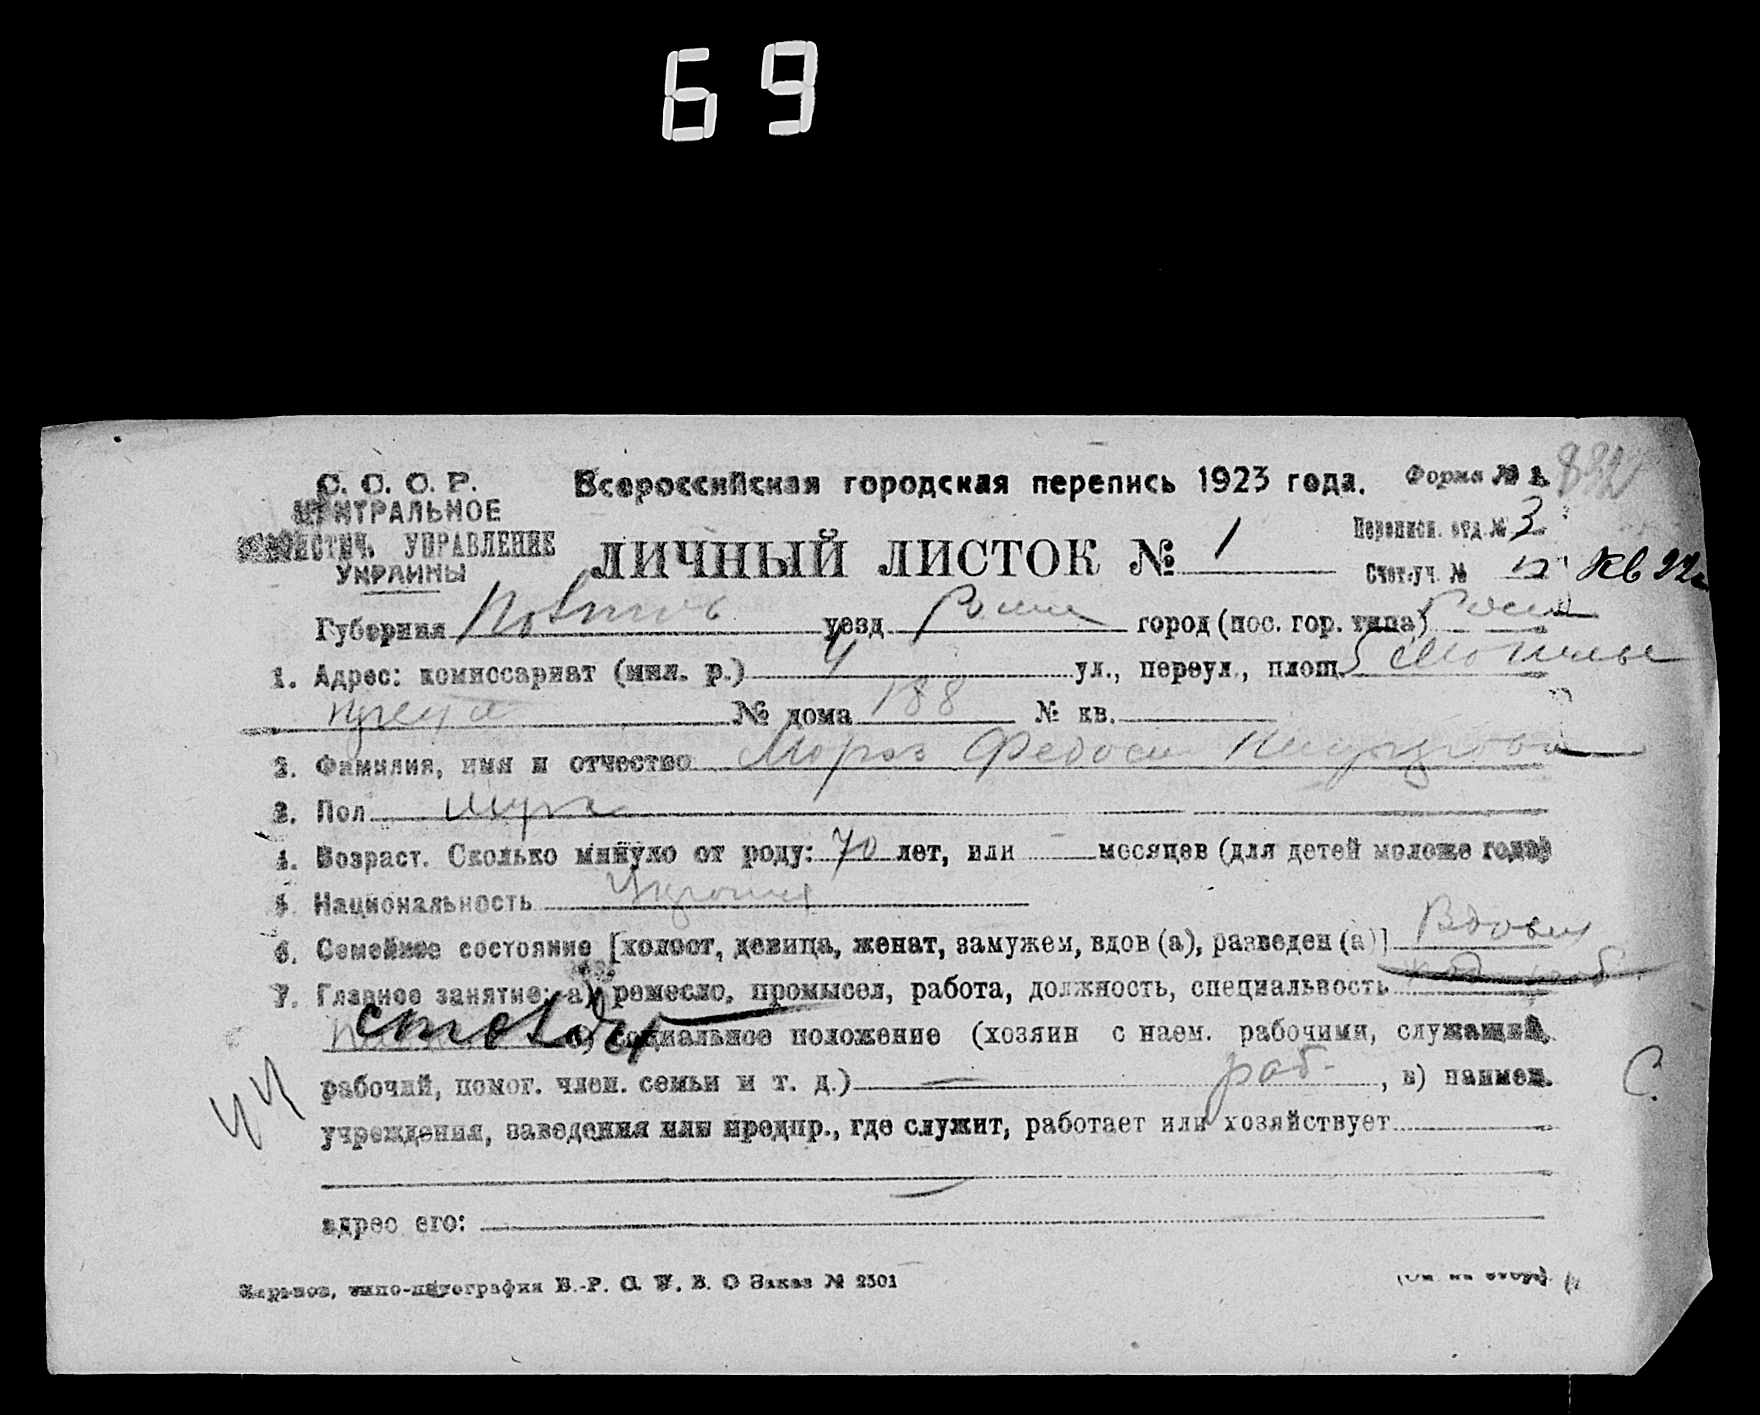 69
С. С. С. Р. Всероссийская городская перепись 1923 года. Форма № 1.
ЦЕНТРАЛЬНОЕ
СТАТИСТИЧ. УПРАВЛЕНИЕ
УКРАИНЫ
ЛИЧНЫЙ ЛИСТОК № 1
Переписн. отд. № 3
Счет. уч. № Кв 22
Губерния уезд Ромн город (пос. гор. типа) Ромн
1. Адрес: комиссариат (мил. р.) 4 ул., переул., площ.
№ дома 188 № кв.
2. Фамилия, имя и отчество Мороз Федосий
3. Пол муж
4. Возраст. Сколько минуло от роду: 70 лет, или месяцев (для детей моложе года)
5. Национальность Украинец
6. Семейное состояние [холост, девица, женат, замужем, вдов (а), разведен (а)] Вдовец
7. Главное занятие: а) ремесло, промысел, работа, должность, специальность
б) социальное положение (хозяин с наем. рабочими, служащий,
рабочий, помог. член. семьи и т. д.) — раб. , в) наимен. С.
учреждения, заведения или предпр., где служит, работает или хозяйствует
адрес его:
Харьков, типо-литография В.-Р. С. У. В. О Заказ № 2301